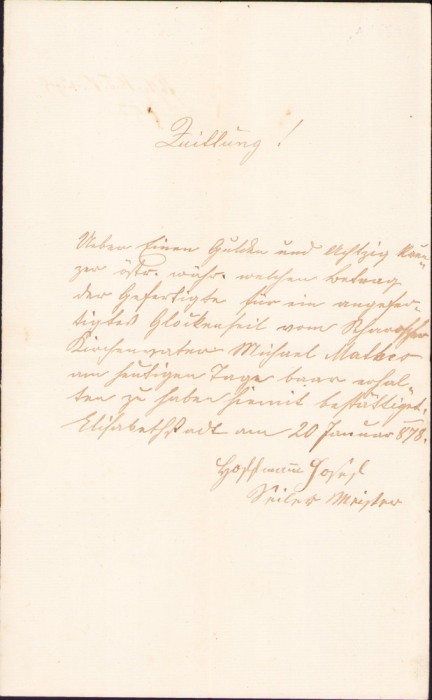 Quittung!
Ueber Einen Gulden und Achtzig Kreu-
zer östr. währ. welchen Betrag
der Gefertigte für ein angefer-
tigtes Glockenseil vom
Kirchenvater Michael
am heutigen Tage baar erhal-
ten zu haben hiemit bestättiget.
Elisabethstadt am 20 Januar 1878.
Hoffmann Josef
Seiler Meister